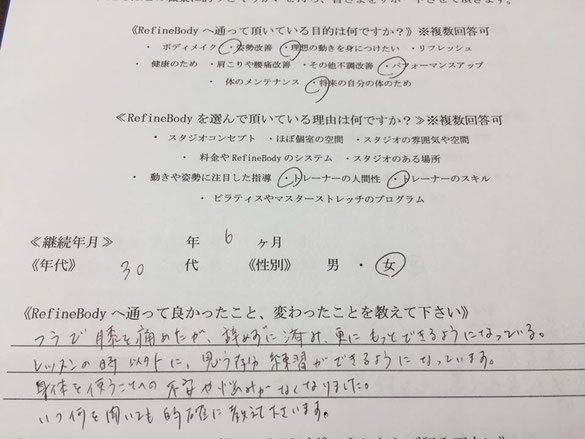 《RefineBody へ通って頂いている目的は何ですか？》※複数回答可
・ ボディメイク ・姿勢改善 ・理想の動きを身につけたい ・リフレッシュ
・ 健康のため ・肩こりや腰痛改善 ・その他不調改善 ・パフォーマンスアップ
・ 体のメンテナンス ・将来の自分の体のため
≪RefineBody を選んで頂いている理由は何ですか？≫※複数回答可
・ スタジオコンセプト ・ほぼ個室の空間 ・スタジオの雰囲気や空間
・ 料金や RefineBody のシステム ・スタジオのある場所
・ 動きや姿勢に注目した指導 ・トレーナーの人間性 ・トレーナーのスキル
・ ピラティスやマスターストレッチのプログラム
≪継続年月≫ 年 6 ヶ月
《年代》 30 代 《性別》 男 ・ 女
《RefineBody へ通って良かったこと、変わったことを教えて下さい》
フラで膝を痛めたが、辞めずに済み、更にもっとできるようになっている。
レッスンの時以外に、思う存分練習ができるようになっています。
身体を使うことへの不安や悩みがなくなりました。
いつ何を聞いても的確に教えて下さいます。